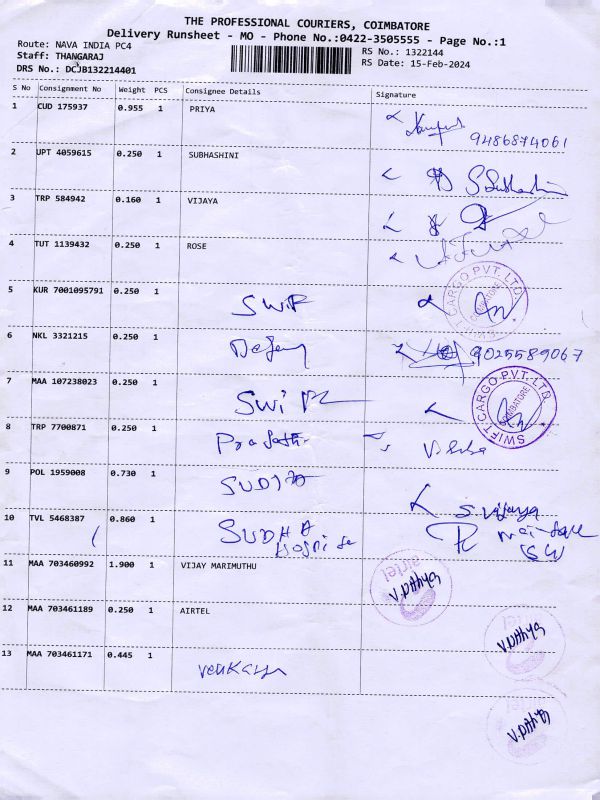 THE PROFESSIONAL COURIERS, COIMBATORE
Delivery Runsheet - MO - Phone No.:0422-3505555 - Page No.:1
Route: NAVA INDIA PC4
RS No.: 1322144
Staff: THANGARAJ
RS Date: 15-Feb-2024
DRS No.: DCJB132214401
S No Consignment No Weight PCS Consignee Details Signature
1 CUD 175937 0.955 1 PRIYA
9486874061
2 UPT 4059615 0.250 1 SUBHASHINI
S Subhashini
3 TRP 584942 0.160 1 VIJAYA
4 TUT 1139432 0.250 1 ROSE
5 KUR 7001095791 0.250 1 SWIF
SWIFT CARGO PVT. LTD. COIMBATORE
6 NKL 3321215 0.250 1
9025589067
7 MAA 107238023 0.250 1 SWI
SWIFT CARGO PVT. LTD COIMBATORE
8 TRP 7700871 0.250 1
9 POL 1959008 0.730 1
S. vijaya
10 TVL 5468387 0.860 1 SUDHA
SW
11 MAA 703460992 1.900 1 VIJAY MARIMUTHU
airtel
V.DAHYA
12 MAA 703461189 0.250 1 AIRTEL
V.DAHYA
13 MAA 703461171 0.445 1
V.DAHYA